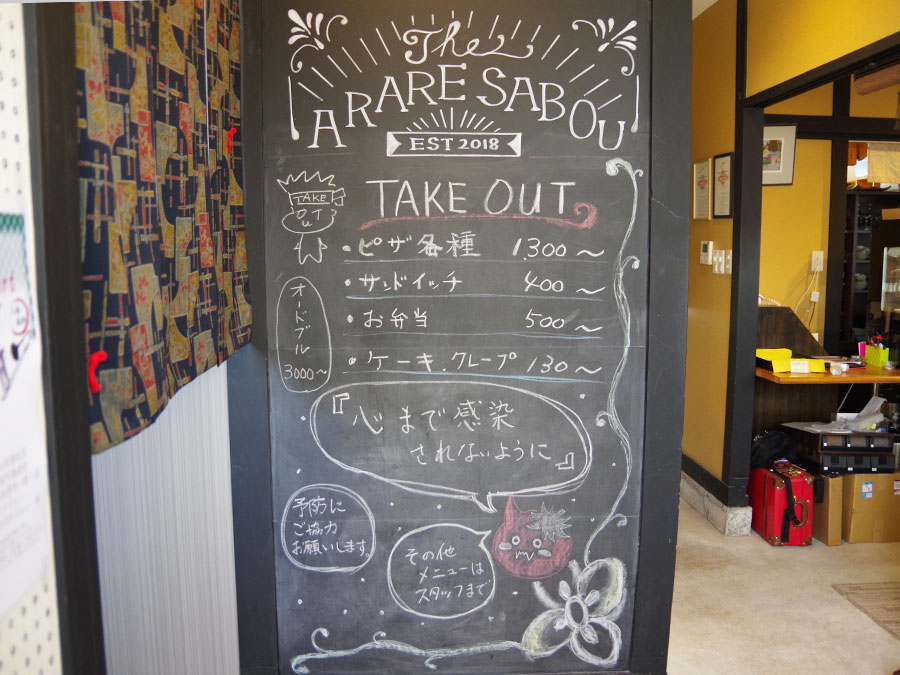 The
ARARE SABOU
EST 2018
TAKE
OUT
TAKE OUT
・ピザ各種 1,300～
・サンドイッチ 400～
・お弁当 500～
・ケーキ.クレープ 130～
オードブル
3000～
『心まで感染
されないように』
予防に
ご協力
お願いします。
その他
メニューは
スタッフまで